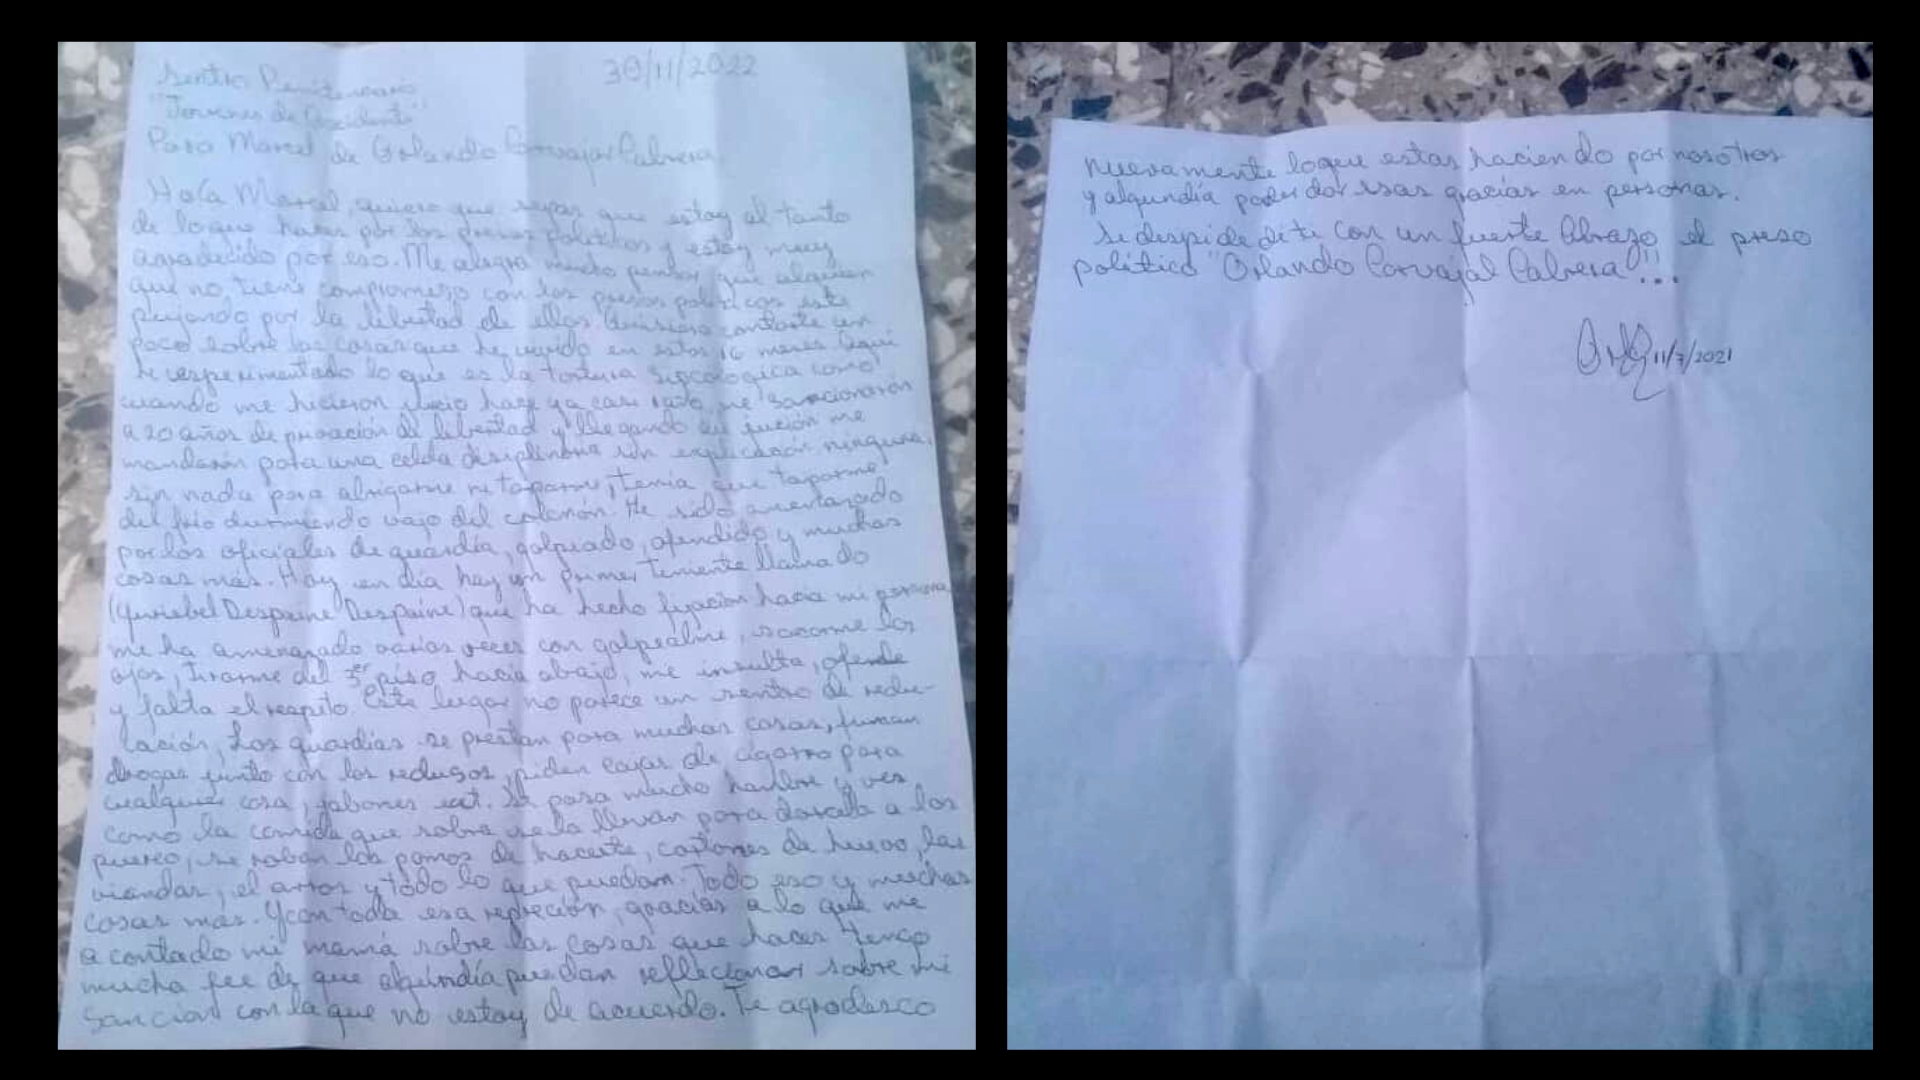 30/11/2022
Sentro Penitenciario
"Jovenes de Occidente"
Para Marcel de Orlando Carvajal Cabrera
Hola Marcel, quiero que sepas que estoy al tanto
de loque haces por los presos politicos y estoy muy
agradecido por eso. Me alegra mucho pensar que alguien
que no tiene compromeso con los presos politicos este
pujando por la libertad de ellos Quisiera contarte un
poco sobre las cosas que he vivido en estos 16 meses Aqui
he esperimentado lo que es la tortura sigcologica como
cuando me hicieron jucio hace ya casi 1 año, me sancionarón
a 20 años de privación de libertad y llegando del jución me
mandarón para una celda disiplinaria sin explicasón ninguna,
sin nada para abrigarme ni taparme, tenia que taparme
del frio durmiendo vajo del colchón. He sido amenazado
por los oficiales de guardia, golpeado, ofendido y muchas
cosas más. Hoy en dia hay un primer teniente llamado
(Yuriebel Despaine Despaine) que ha hecho fijación hacia mi persona,
me ha amenazado varias veces con golpealme, sacarme los
ojos, tirarme del 3er piso hacia abajo, me insulta, ofende
y falta el respito. Este lugar no parece un sentro de redu-
cación, Los guardias se prestan para muchas cosas, fuman
drogas junto con los reclusos, piden cajas de cigarro para
cualquier cosa, jabones ect. Se pasa mucho hambre y ves
como la comida que sobra se la llevan para darcela a los
puerco, se roban los pomos de haceite, cartones de huevo, las
viandas, el arros y todo lo que puedan. Todo eso y muchas
cosas más. Y con toda esa represión, gracias a lo que me
a contado mi mamá sobre las cosas que haces tengo
mucha fee de que algundía puedan reflecionar sobre mi
sancion con la que no estoy de acuerdo. Te agradesco
nuevamente loque estas haciendo por nosotros
y algundia poder dar esas gracias en personas.
Se despide de ti con un fuerte Abrazo el preso
politico "Orlando Carvajal Cabrera"!...
11/7/2021